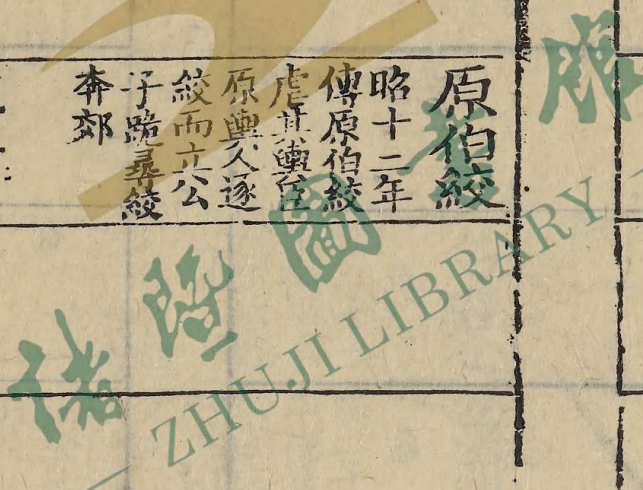 原伯絞
昭十二年
傳原伯絞
虐其輿臣
原輿人逐
絞而立公
子跪尋絞
奔郊
諸暨圖書館
ZHUJI LIBRARY